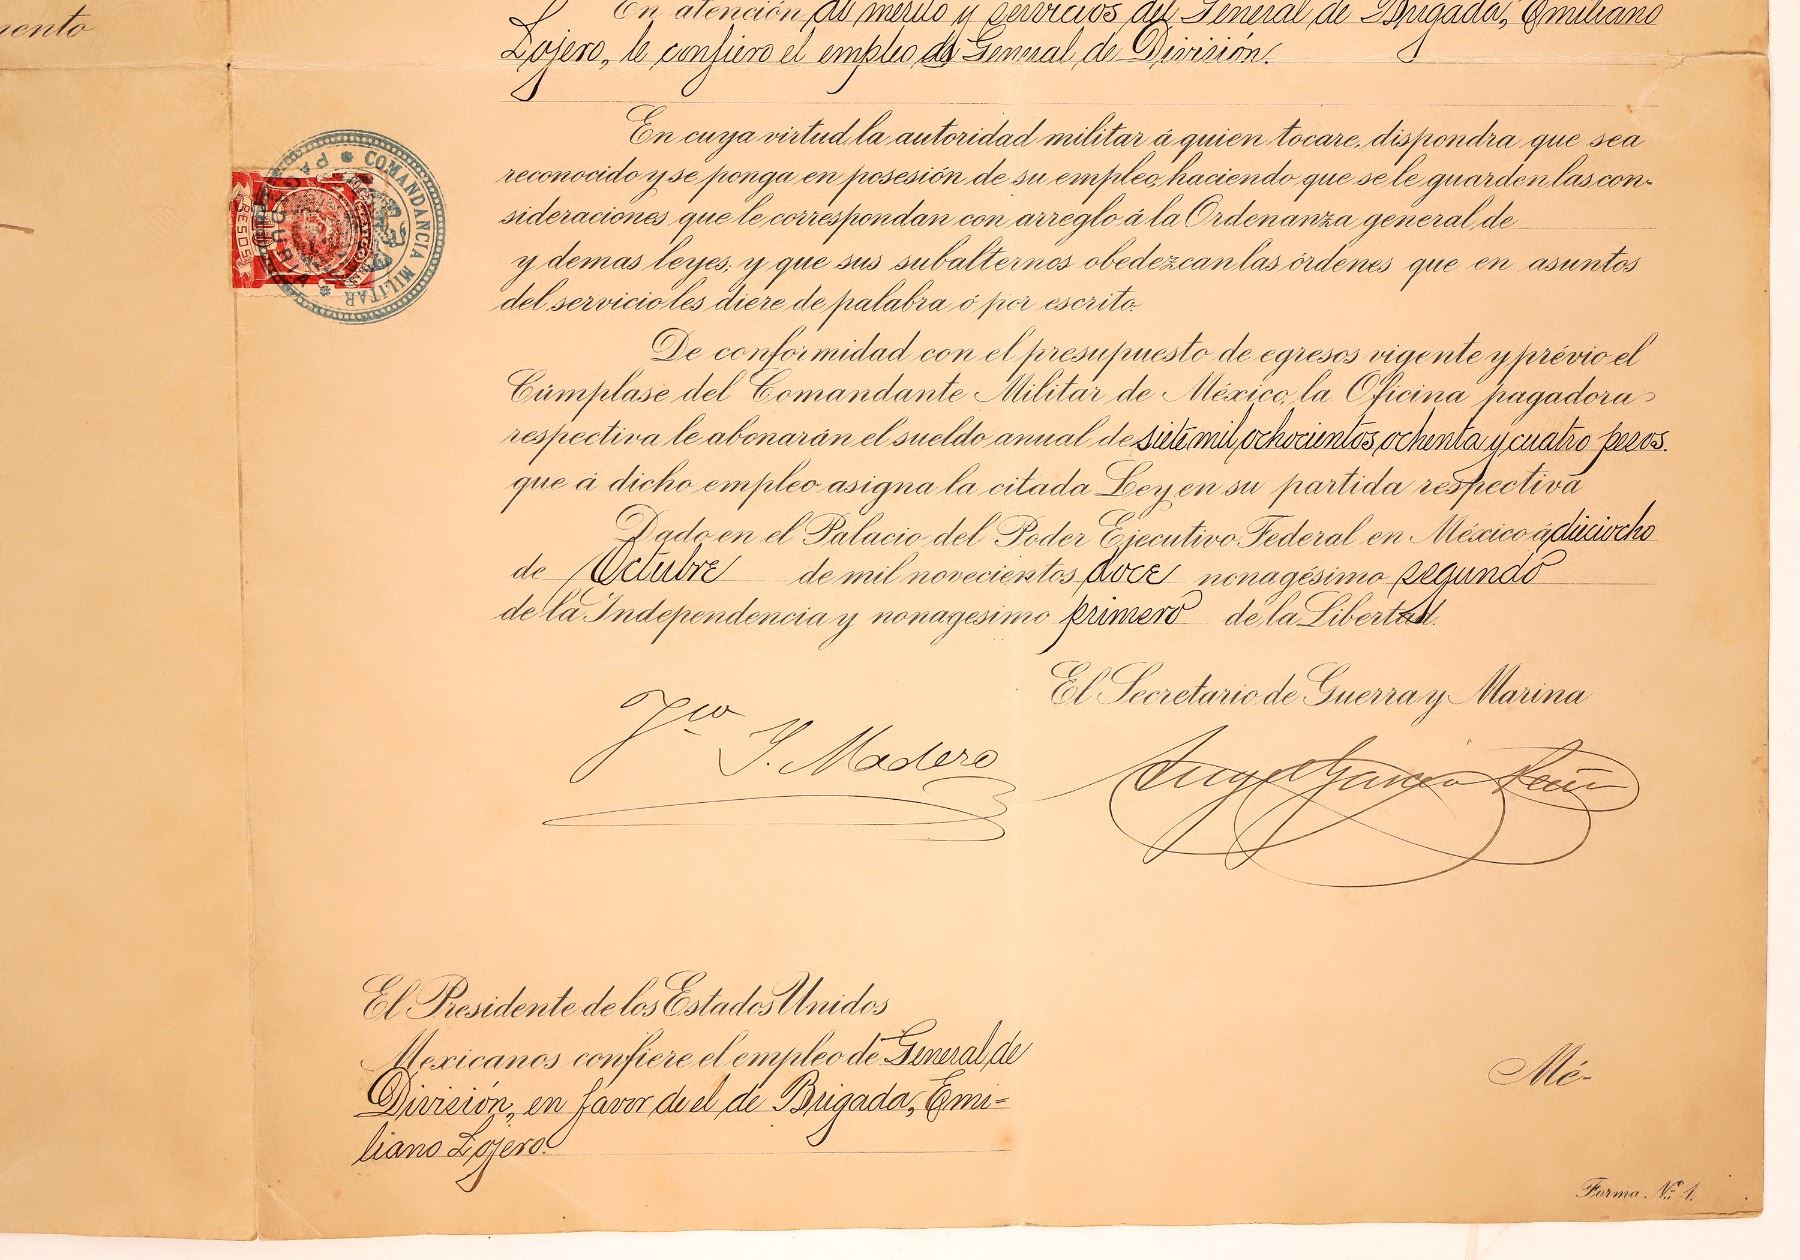 mento
En atención al merito y servicios del General de Brigada, Emiliano
Lojero, le confiero el empleo de General de División.
En cuya virtud, la autoridad militar á quien tocare, dispondra que sea
reconocido y se ponga en posesión de su empleo, haciendo que se le guarden las con-
sideraciones que le correspondan con arreglo á la Ordenanza general de
y demas leyes, y que sus subalternos obedezcan las órdenes que en asuntos
del servicio les diere de palabra ó por escrito.
De conformidad con el presupuesto de egresos vigente y prévio el
Cúmplase del Comandante Militar de México, la Oficina pagadora
respectiva le abonarán el sueldo anual de siete mil ochocientos ochenta y cuatro pesos.
que á dicho empleo asigna la citada Ley en su partida respectiva
Dado en el Palacio del Poder Ejecutivo Federal en México á dieciocho
de Octubre de mil novecientos doce nonagésimo segundo
de la Independencia y nonagesimo primero de la Libertad.
El Secretario de Guerra y Marina
Fco I. Madero
Angel Garcia Peña
El Presidente de los Estados Unidos
Mexicanos confiere el empleo de General de
División, en favor de el de Brigada, Emi=
liano Lojero.
Mé-
Forma Nº 1.
COMANDANCIA MILITAR
PESOS